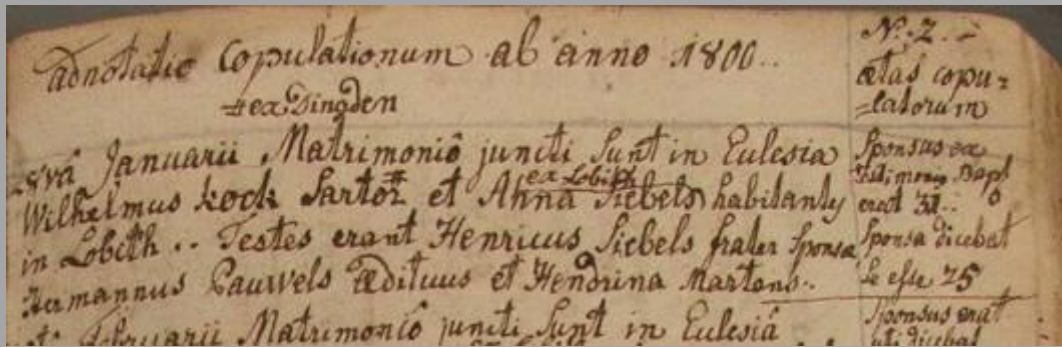 adnotatio Copulationum ab anno 1800..
# ex Dingden
Januarii Matrimoniô juncti Sunt in Eulesia
Wilhelmus kock Sartor # et Anna ex Lobith Siebels habitantes
in Lobith .. Testes erant Henricus Siebels frater Sponsa
Hermannus Pauwels Ædituus et Hendrina Martens..
Februarii Matrimoniô juncti Sunt in Eulesiâ
No. 2.
ætas copu=
=latorum
Sponsus ex
Bapt
erat 31..
Sponsa dicebat
Se esse 25
Sponsus erat
uti dicebat